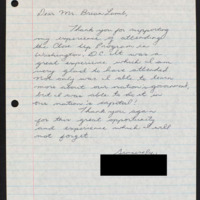 Dear Mr. Brian Lamb,
Thank you for supporting
my experience of attending
the Close Up Program in
Washington, D.C. It was a
great experience which I am
very glad to have attended.
Not only was I able to learn
more about our nation's government,
but I was able to do it in
our nation's capital!
Thank you again
for this great opportunity
and experience which I will
not forget.
Sincerely,